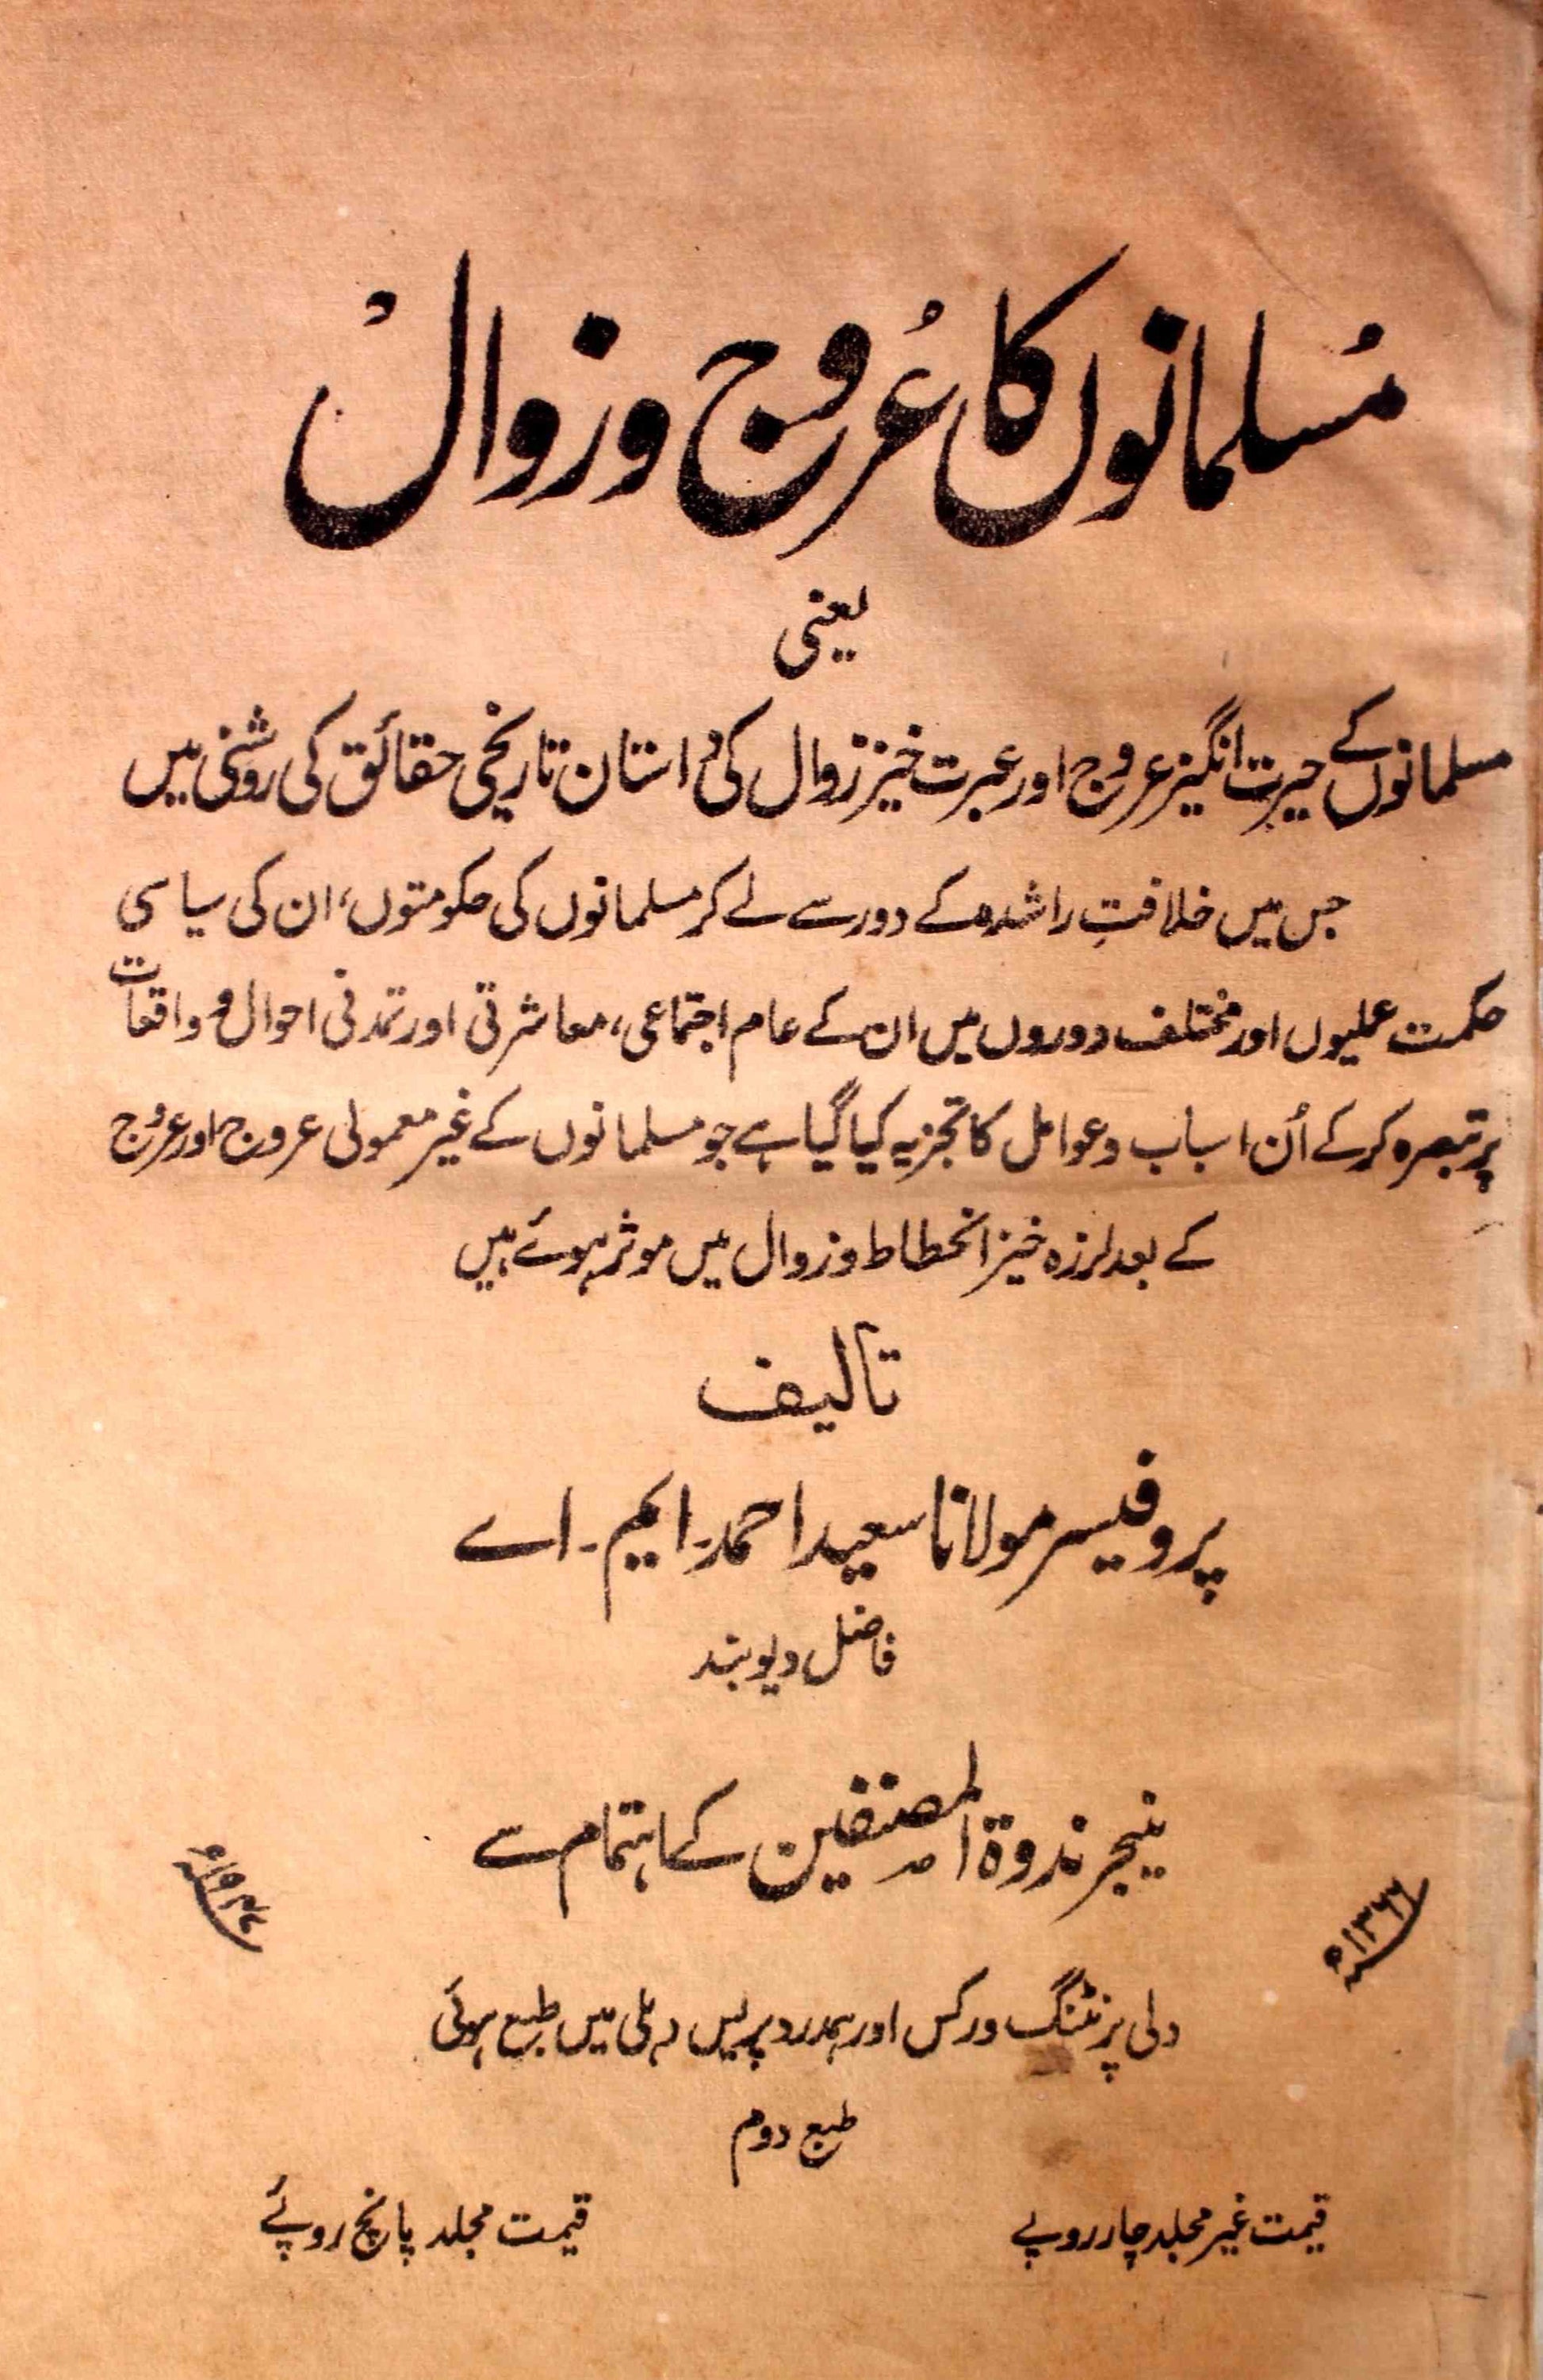 مُسلمانوں کا عُروج و زوال
یعنی
مسلمانوں کے حیرت انگیز عروج اور عبرت خیز زوال کی داستان تاریخی حقائق کی روشنی میں
جس میں خلافتِ راشدہ کے دور سے لے کر مسلمانوں کی حکومتوں، ان کی سیاسی
حکمت عملیوں اور مختلف دوروں میں ان کے عام اجتماعی، معاشرتی اور تمدنی احوال و واقعات
پر تبصرہ کر کے اُن اسباب و عوامل کا تجزیہ کیا گیا ہے جو مسلمانوں کے غیر معمولی عروج اور عروج
کے بعد لرزہ خیز انحطاط و زوال میں موثر ہوئے ہیں
تالیف
پروفیسر مولانا سعید احمد۔ ایم۔ اے
فاضل دیوبند
منیجر ندوۃ المصنفین کے اہتمام سے
۱۳۶۶ھ
۱۹۴۷ء
دلی پرنٹنگ ورکس اور ہمدرد پریس دہلی میں طبع ہوئی
طبع دوم
قیمت غیر مجلد چار روپے
قیمت مجلد پانچ روپئے